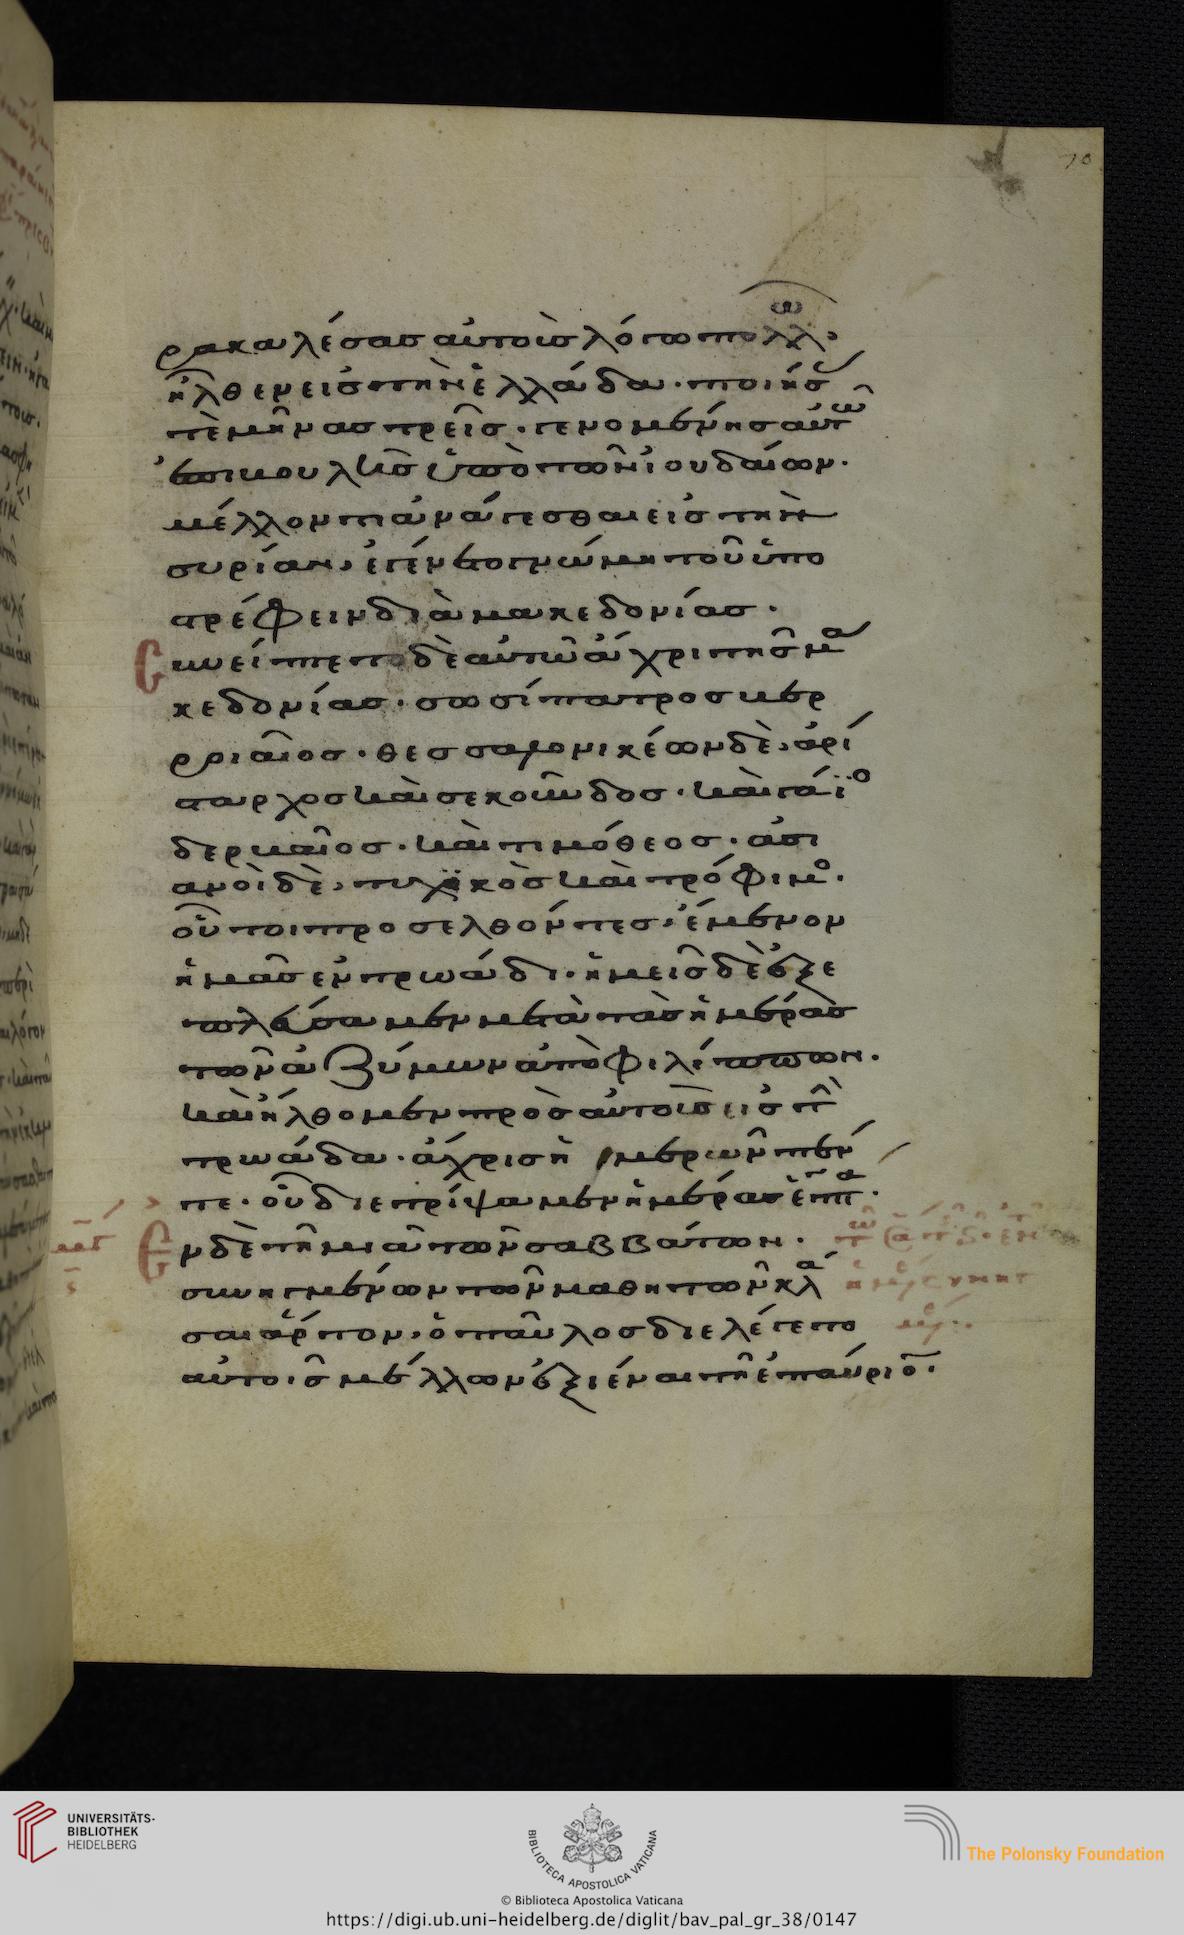 70
ρακαλέσασ αὐτοὺσ λόγω πολλῶ,
ἦλθεν εἰσ τὴν ἑλλάδα· ποιήσασ
τὲ μῆνασ τρεῖσ· γενομένησ αὐτῶ
ἐπιβουλῆσ ὑπὸ τῶν ἰουδαίων·
μέλλοντι ἀνάγεσθαι εἰσ τὴν
συρίαν, ἐγένετο γνώμη τοῦ ὑπο
στρέφειν διὰ μακεδονίασ·
Συνείπετο δὲ αὐτῶ ἄχρι τῆσ μα
κεδονίασ· σωσίπατροσ βερ
ροιαῖοσ· θεσσαλονικέων δὲ, ἀρί
σταρχοσ καὶ σεκοῦνδοσ· καὶ γάϊο
δερβαῖοσ· καὶ τιμόθεοσ· ἀσι
ανοὶ δὲ, τυχϊκὸσ καὶ τρόφιμο·
οὗτοι προσελθόντεσ, ἔμενον
ἡμᾶσ ἐν τρωάδι· ἡμεῖσ δὲ ἐξε
πλεύσαμεν μετὰ τὰσ ἡμέρασ
τῶν ἀζύμων ἀπὸ φιλίππων·
καὶ ἤλθομεν πρὸσ αὐτοὺσ εἰσ τὴν
τρωάδα· ἄχρισ ἡμερῶν πέν
τε· οὗ διετρίψαμεν ἡμέρασ ἑπτά·
Ἐν δὲ τῆ μιᾶ τῶν σαββάτων·
συνηγμένων τῶν μαθητῶν κλά
σαι ἄρτον, ὁ παῦλοσ διελέγετο
αὐτοῖσ μέλλων ἐξιέναι τῆ ἐπαύριον·
UNIVERSITÄTS-
BIBLIOTHEK
HEIDELBERG
BIBLIOTECA APOSTOLICA VATICANA
The Polonsky Foundation
© Biblioteca Apostolica Vaticana
https://digi.ub.uni-heidelberg.de/diglit/bav_pal_gr_38/0147